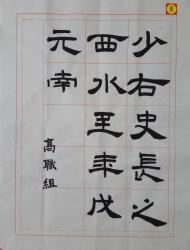 少右史長之
西水王年戊
元南
高職組
8